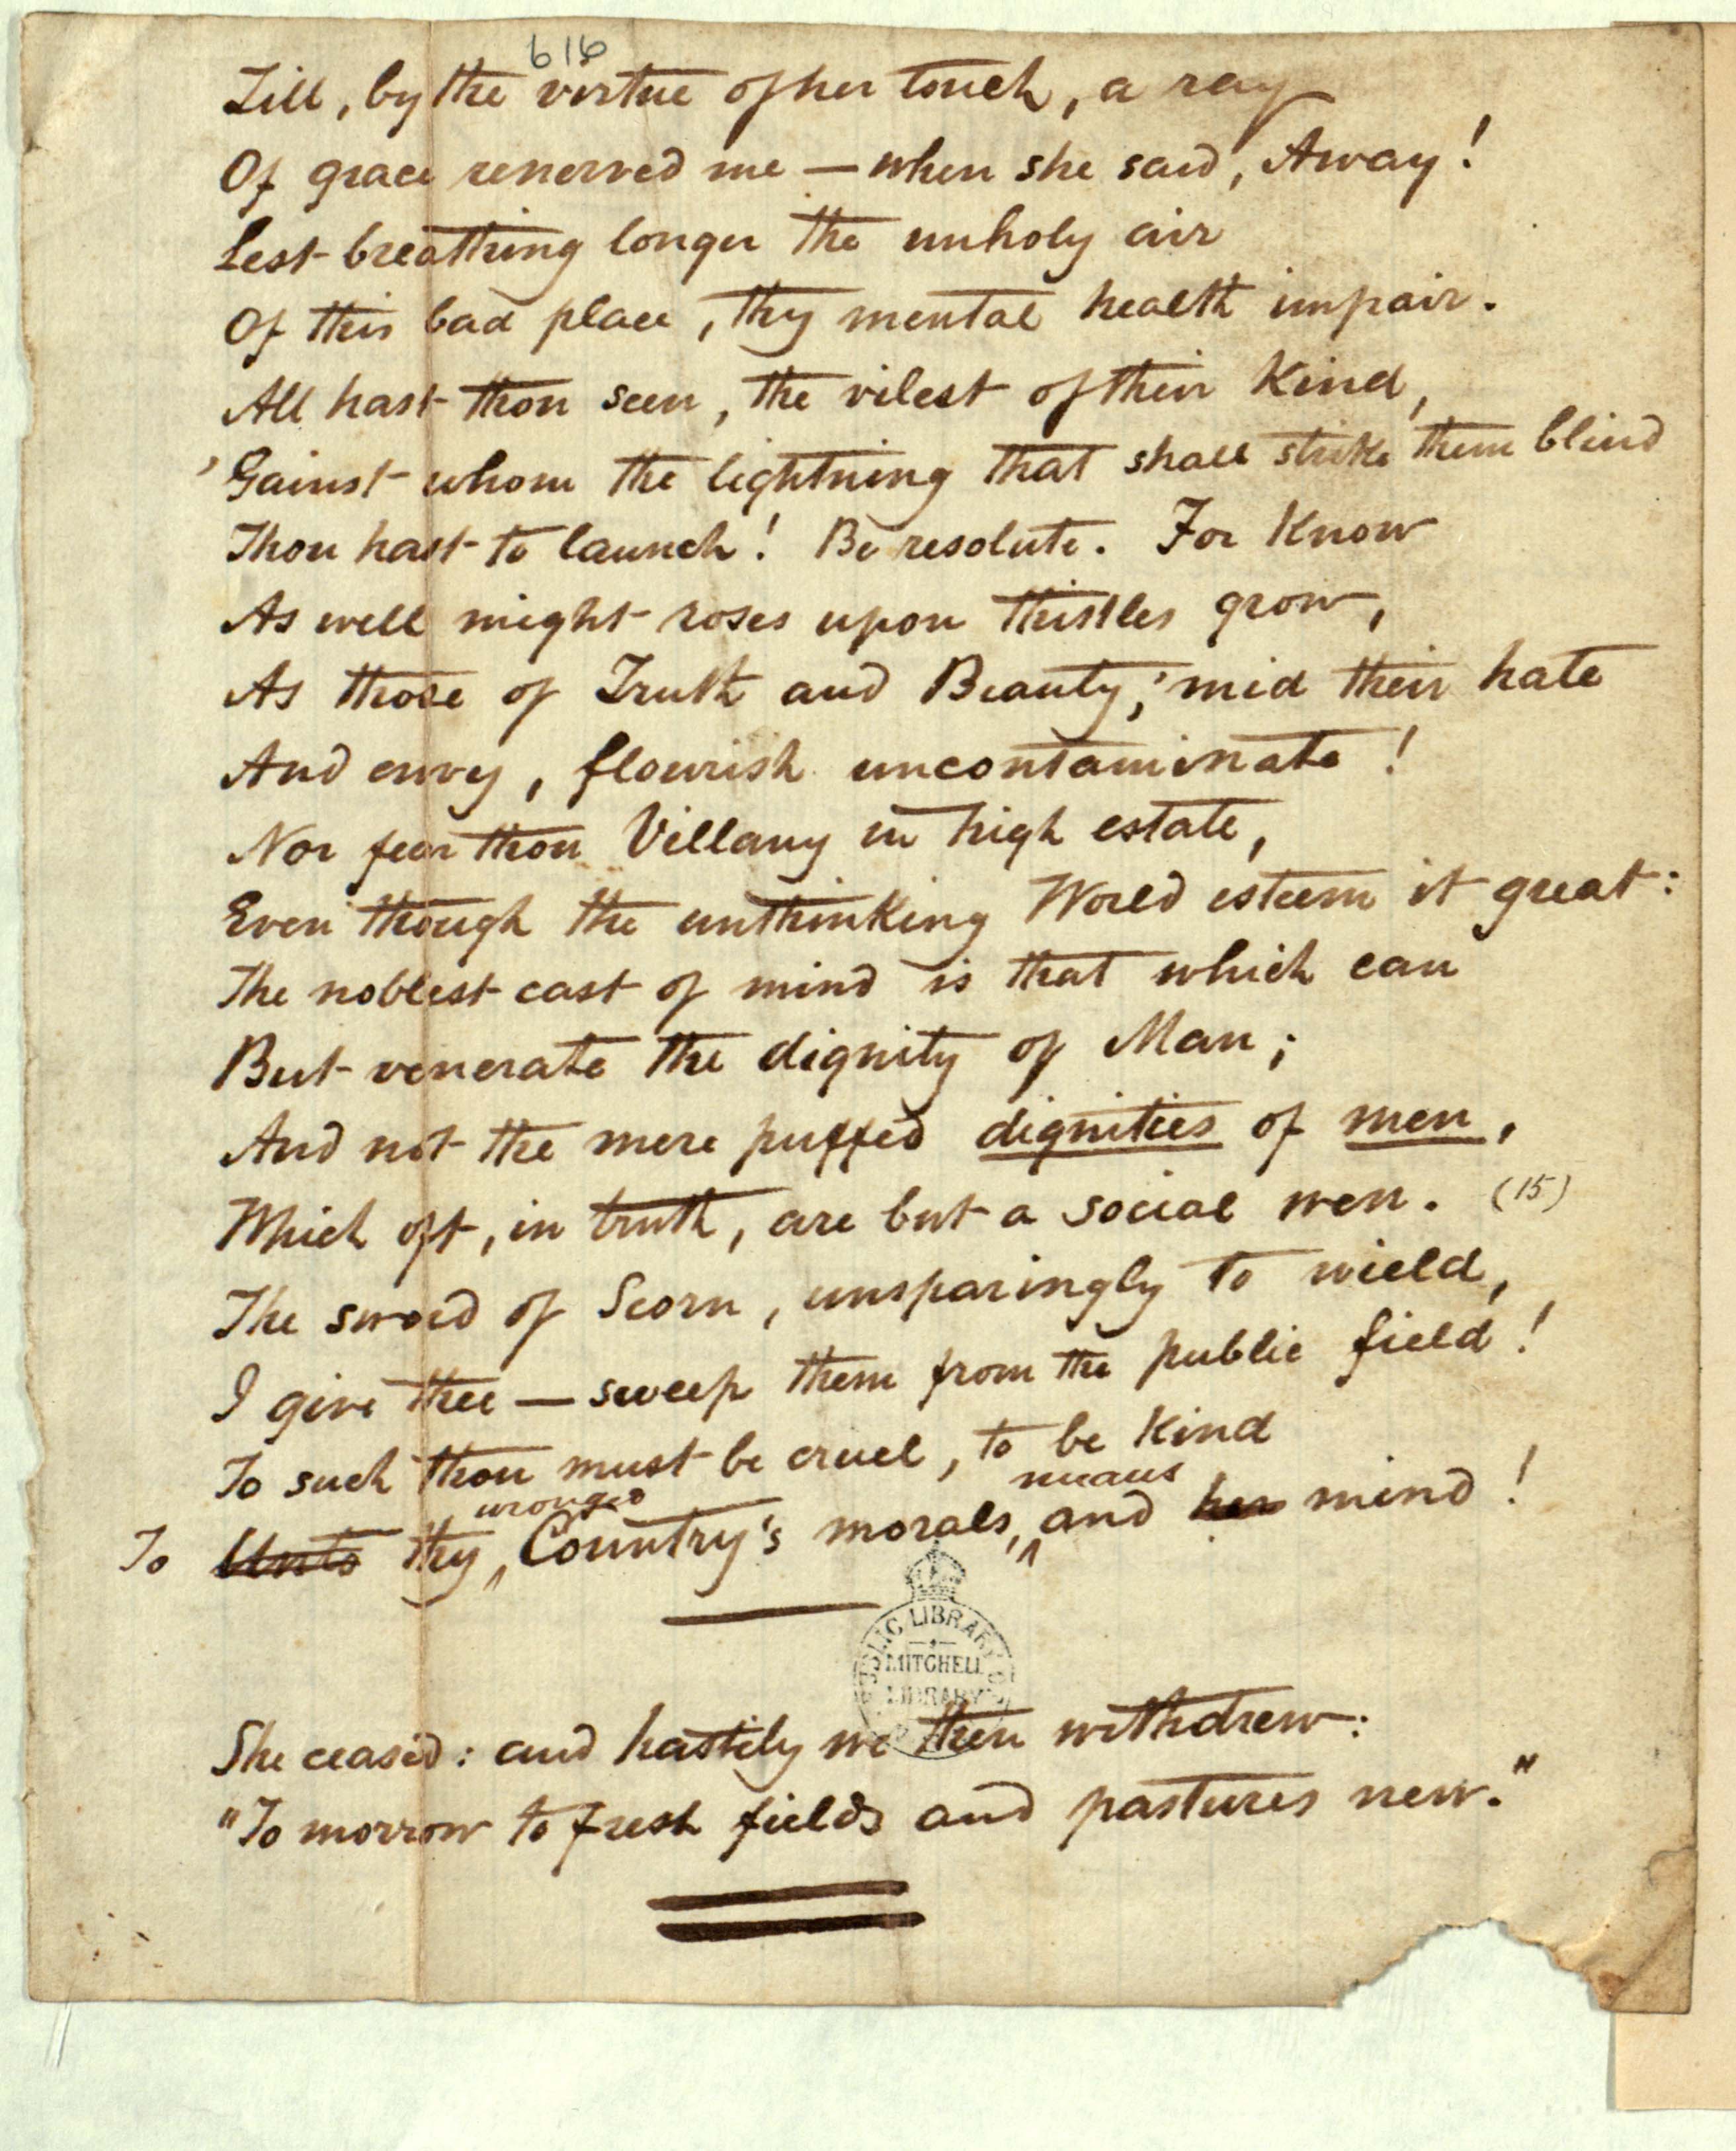 616
Till, by the virtue of her touch, a ray
Of grace renerved me — when she said, Away!
Lest breathing longer the unholy air
Of this bad place, thy mental health impair.
All hast thou seen, the vilest of their kind,
'Gainst whom the lightning that shall strike them blind
Thou hast to launch! Be resolute. For know
As well might roses upon thistles grow,
As those of Truth and Beauty, 'mid their hate
And envy, flourish uncontaminate!
Nor fear thou Villany in high estate,
Even though the unthinking World esteem it great:
The noblest cast of mind is that which can
But venerate the dignity of Man;
And not the mere puffed dignities of men,
Which oft, in truth, are but a social wen. (15)
The sword of Scorn, unsparingly to wield,
I give thee — sweep them from the public field!
To such thou must be cruel, to be kind
wronged means
To Unto thy ^ Country's morals, ^ and her mind!
PUBLIC LIBRARY
MITCHELL
LIBRARY
She ceased: and hastily we then withdrew:
"To morrow to fresh fields and pastures new."